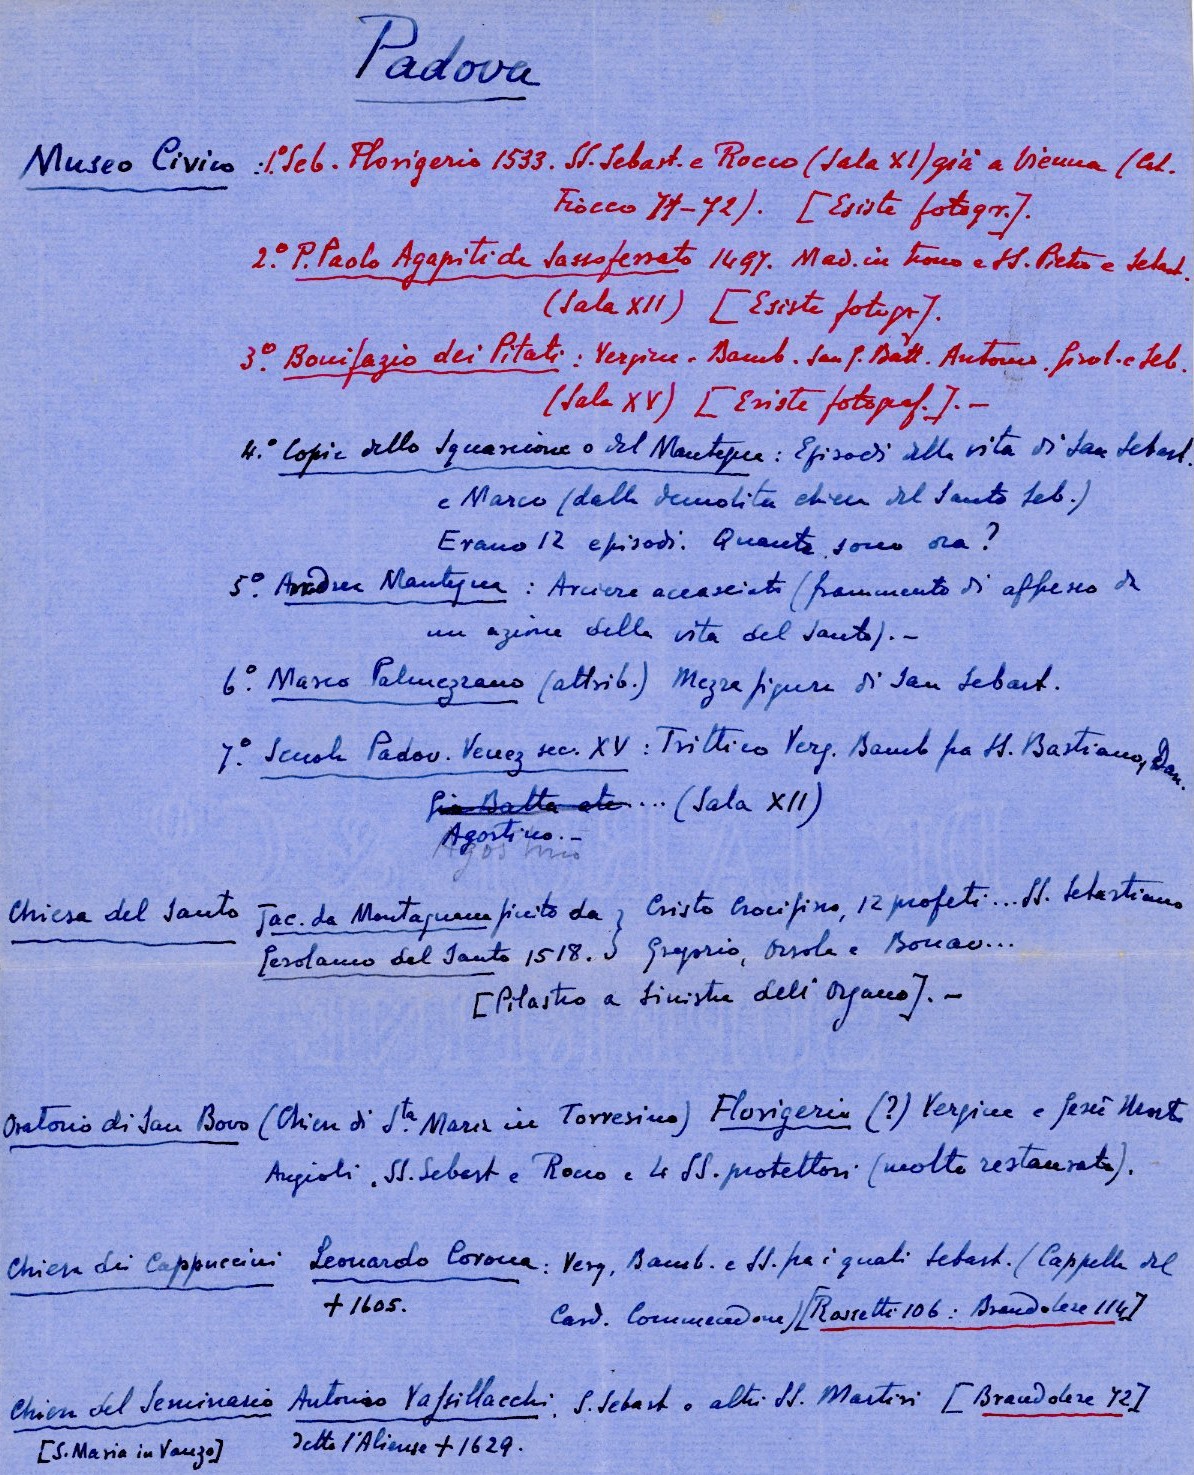 Padova
Museo Civico : 1.° Seb. Florigerio 1533. SS. Sebast. e Rocco (Sala XI) già a Vienna (Cat.
Fiocco 71-72). [Esiste fotogr.].
2.° P. Paolo Agapiti da Sassoferrato 1497. Mad. in trono e SS. Pietro e Sebast.
(Sala XII) [Esiste fotogr].
3.° Bonifazio dei Pitati : Vergine. Bamb. San G. Batt. Antonio. Girol. e Seb.
(Sala XV) [Esiste fotograf.]. —
4.° Copie dello Squarcione o del Mantegna : Episodi della vita di San Sebast.
e Marco (dalla demolita chiesa del Santo Seb.)
Erano 12 episodi. Quante sono ora?
5.° Andrea Mantegna : Arciere accasciato (frammento di affresco da
un azione della vita del Santo). —
6.° Marco Palmezzano (attrib.) Mezza figura di San Sebast.
7.° Scuola Padov. Venez sec. XV : Trittico Verg. Bamb fra SS. Bastiano, Dan.
Gio Batta ... (Sala XII)
Agostino. —
Agostino
Chiesa del Santo Jac. da Montagnana finito da } Cristo Crocifisso, 12 profeti... SS. Sebastiano
Gerolamo del Santo 1518. Gregorio, Orsola e Bonav...
[Pilastro a Sinistra dell'Organo]. —
Oratorio di San Bovo (Chiesa di Sta. Maria in Torresino) Florigerio (?) Vergine e Gesù Morto
Angioli, SS. Sebast e Rocco e 4 SS. protettori (molto restaurata).
Chiesa dei Cappuccini Leonardo Corona : Verg, Bamb. e SS. fra i quali Sebast. (Cappella del
+ 1605. Card. Commendone) [Rossetti 106 : Brandolese 114]
Chiesa del Seminario Antonio Vassillacchi. S. Sebast e altri SS. Martiri [Brandolese 72]
[S. Maria in Vanzo] detto l'Aliense + 1629.